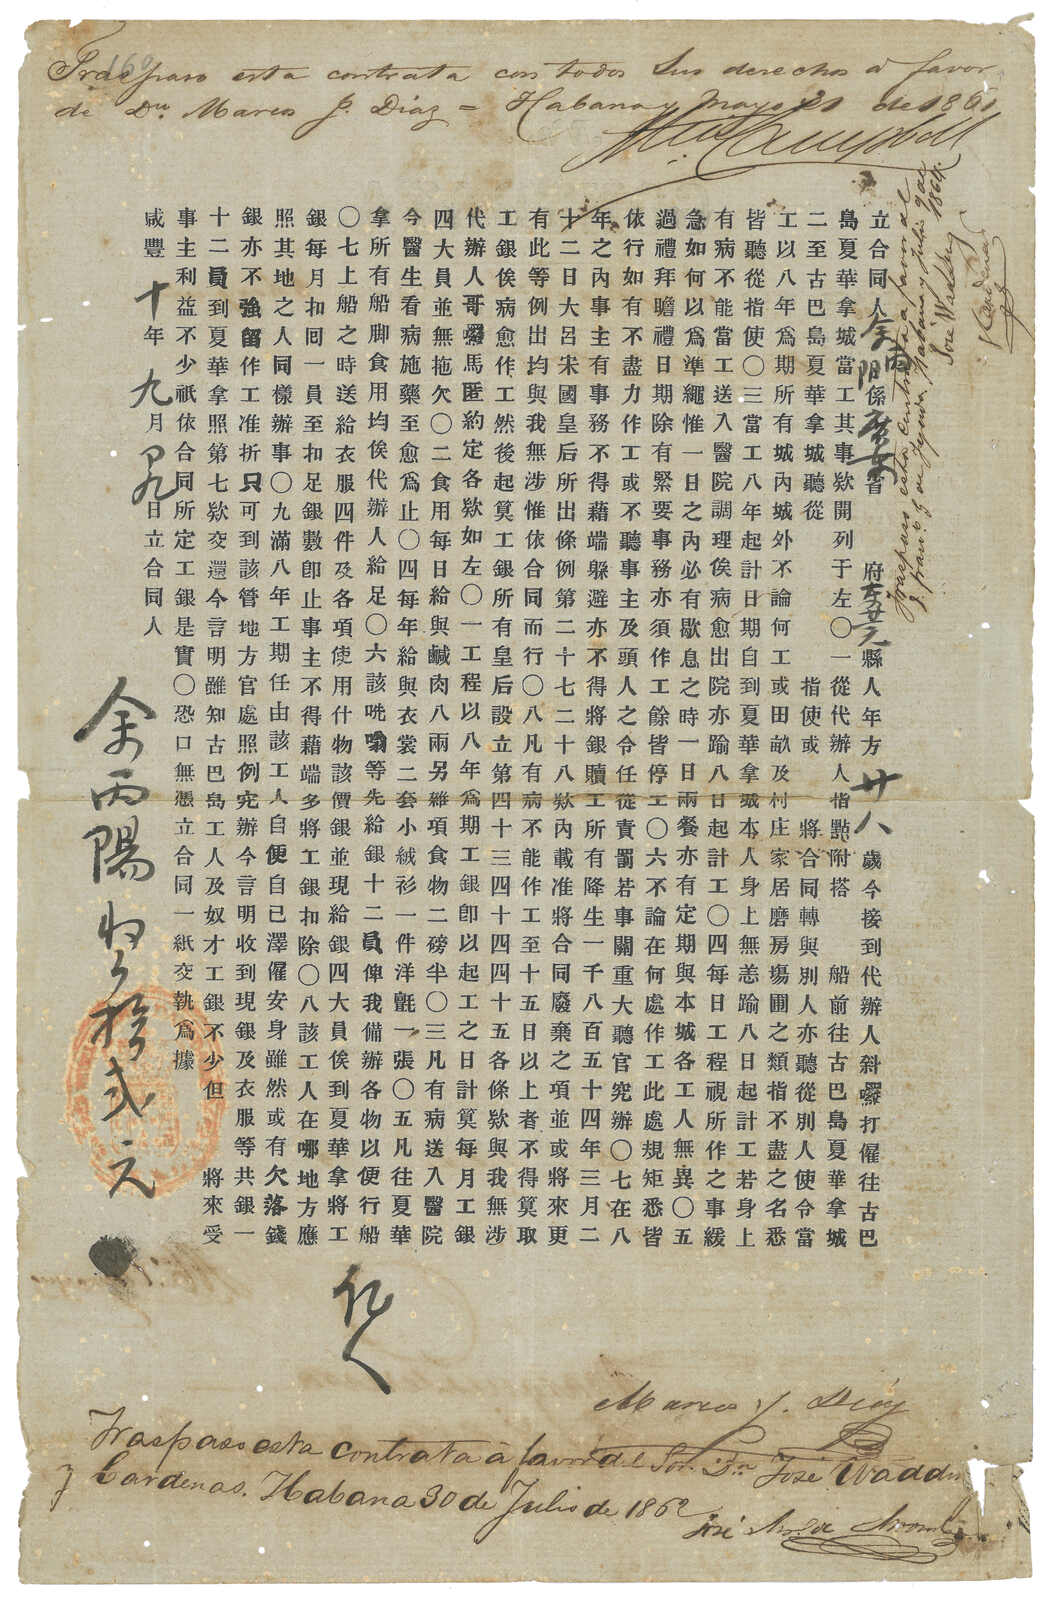 Traspaso esta contrata con todos sus derechos á favor
de Dn. Marcos J. Diaz = Habana y Mayo 21 de 1861
Campbell
Traspaso esta contrata á favor del
José Wadding
Habana y Julio 9 de 1864.
立合同人余丙陽係廣東省 府東莞縣人年方廿八歲今接到代辦人斜㘓打僱往古巴
島夏華拿城當工其事欵開列于左〇一從代辦人指點附搭 船前往古巴島夏華拿城
二至古巴島夏華拿城聽從 指使或 將合同轉與別人亦聽從別人使令當
工以八年爲期所有城內城外不論何工或田畝及村庄家居磨房塲圃之類指不盡之名悉
皆聽從指使〇三當工八年起計日期自到夏華拿城本人身上無恙踰八日起計工若身上
有病不能當工送入醫院調理俟病愈出院亦踰八日起計工〇四每日工程視所作之事緩
急如何以爲準繩惟一日之內必有歇息之時一日兩餐亦有定期與本城各工人無異〇五
過禮拜瞻禮日期除有緊要事務亦須作工餘皆停工〇六不論在何處作工此處規矩悉皆
依行如有不盡力作工或不聽事主及頭人之令任從責罰若事關重大聽官究辦〇七在八
年之內事主有事務不得藉端躲避亦不得將銀贖工所有降生一千八百五十四年三月二
十二日大呂宋國皇后所出條例第二十七二十八欵內載准將合同廢棄之項並或將來更
有此等例出均與我無涉惟依合同而行〇八凡有病不能作工至十五日以上者不得算取
工銀俟病愈作工然後起算工銀所有皇后設立第四十三四十四四十五各條欵與我無涉
代辦人哥㘓馬匿約定各欵如左〇一工程以八年爲期工銀卽以起工之日計算每月工銀
四大員並無拖欠〇二食用每日給與鹹肉八兩另雜項食物二磅半〇三凡有病送入醫院
令醫生看病施藥至愈爲止〇四每年給與衣裳二套小絨衫一件洋氈一張〇五凡往夏華
拿所有船脚食用均俟代辦人給足〇六該等先給銀十二員俾我備辦各物以便行船
〇七上船之時送給衣服四件及各項使用什物該價銀並現給銀四大員俟到夏華拿將工
銀每月扣囘一員至扣足銀數卽止事主不得藉端多將工銀扣除〇八該工人在哪地方應
照其地之人同樣辦事〇九滿八年工期任由該工人自便自己澤僱安身雖然或有欠落錢
銀亦不強留作工准折只可到該管地方官處照例究辦今言明收到現銀及衣服等共銀一
十二員到夏華拿照第七欵交還今言明雖知古巴島工人及奴才工銀不少但 將來受
事主利益不少祇依合同所定工銀是實〇恐口無憑立合同一紙交執爲據
咸豐十年九月 日立合同人
余丙陽 收 拾弍元
Marcos J. Diaz
Traspaso esta contrata á favor del Sor. Dn. José Wadding
y Cardenas. Habana 30 de Julio de 1862
José